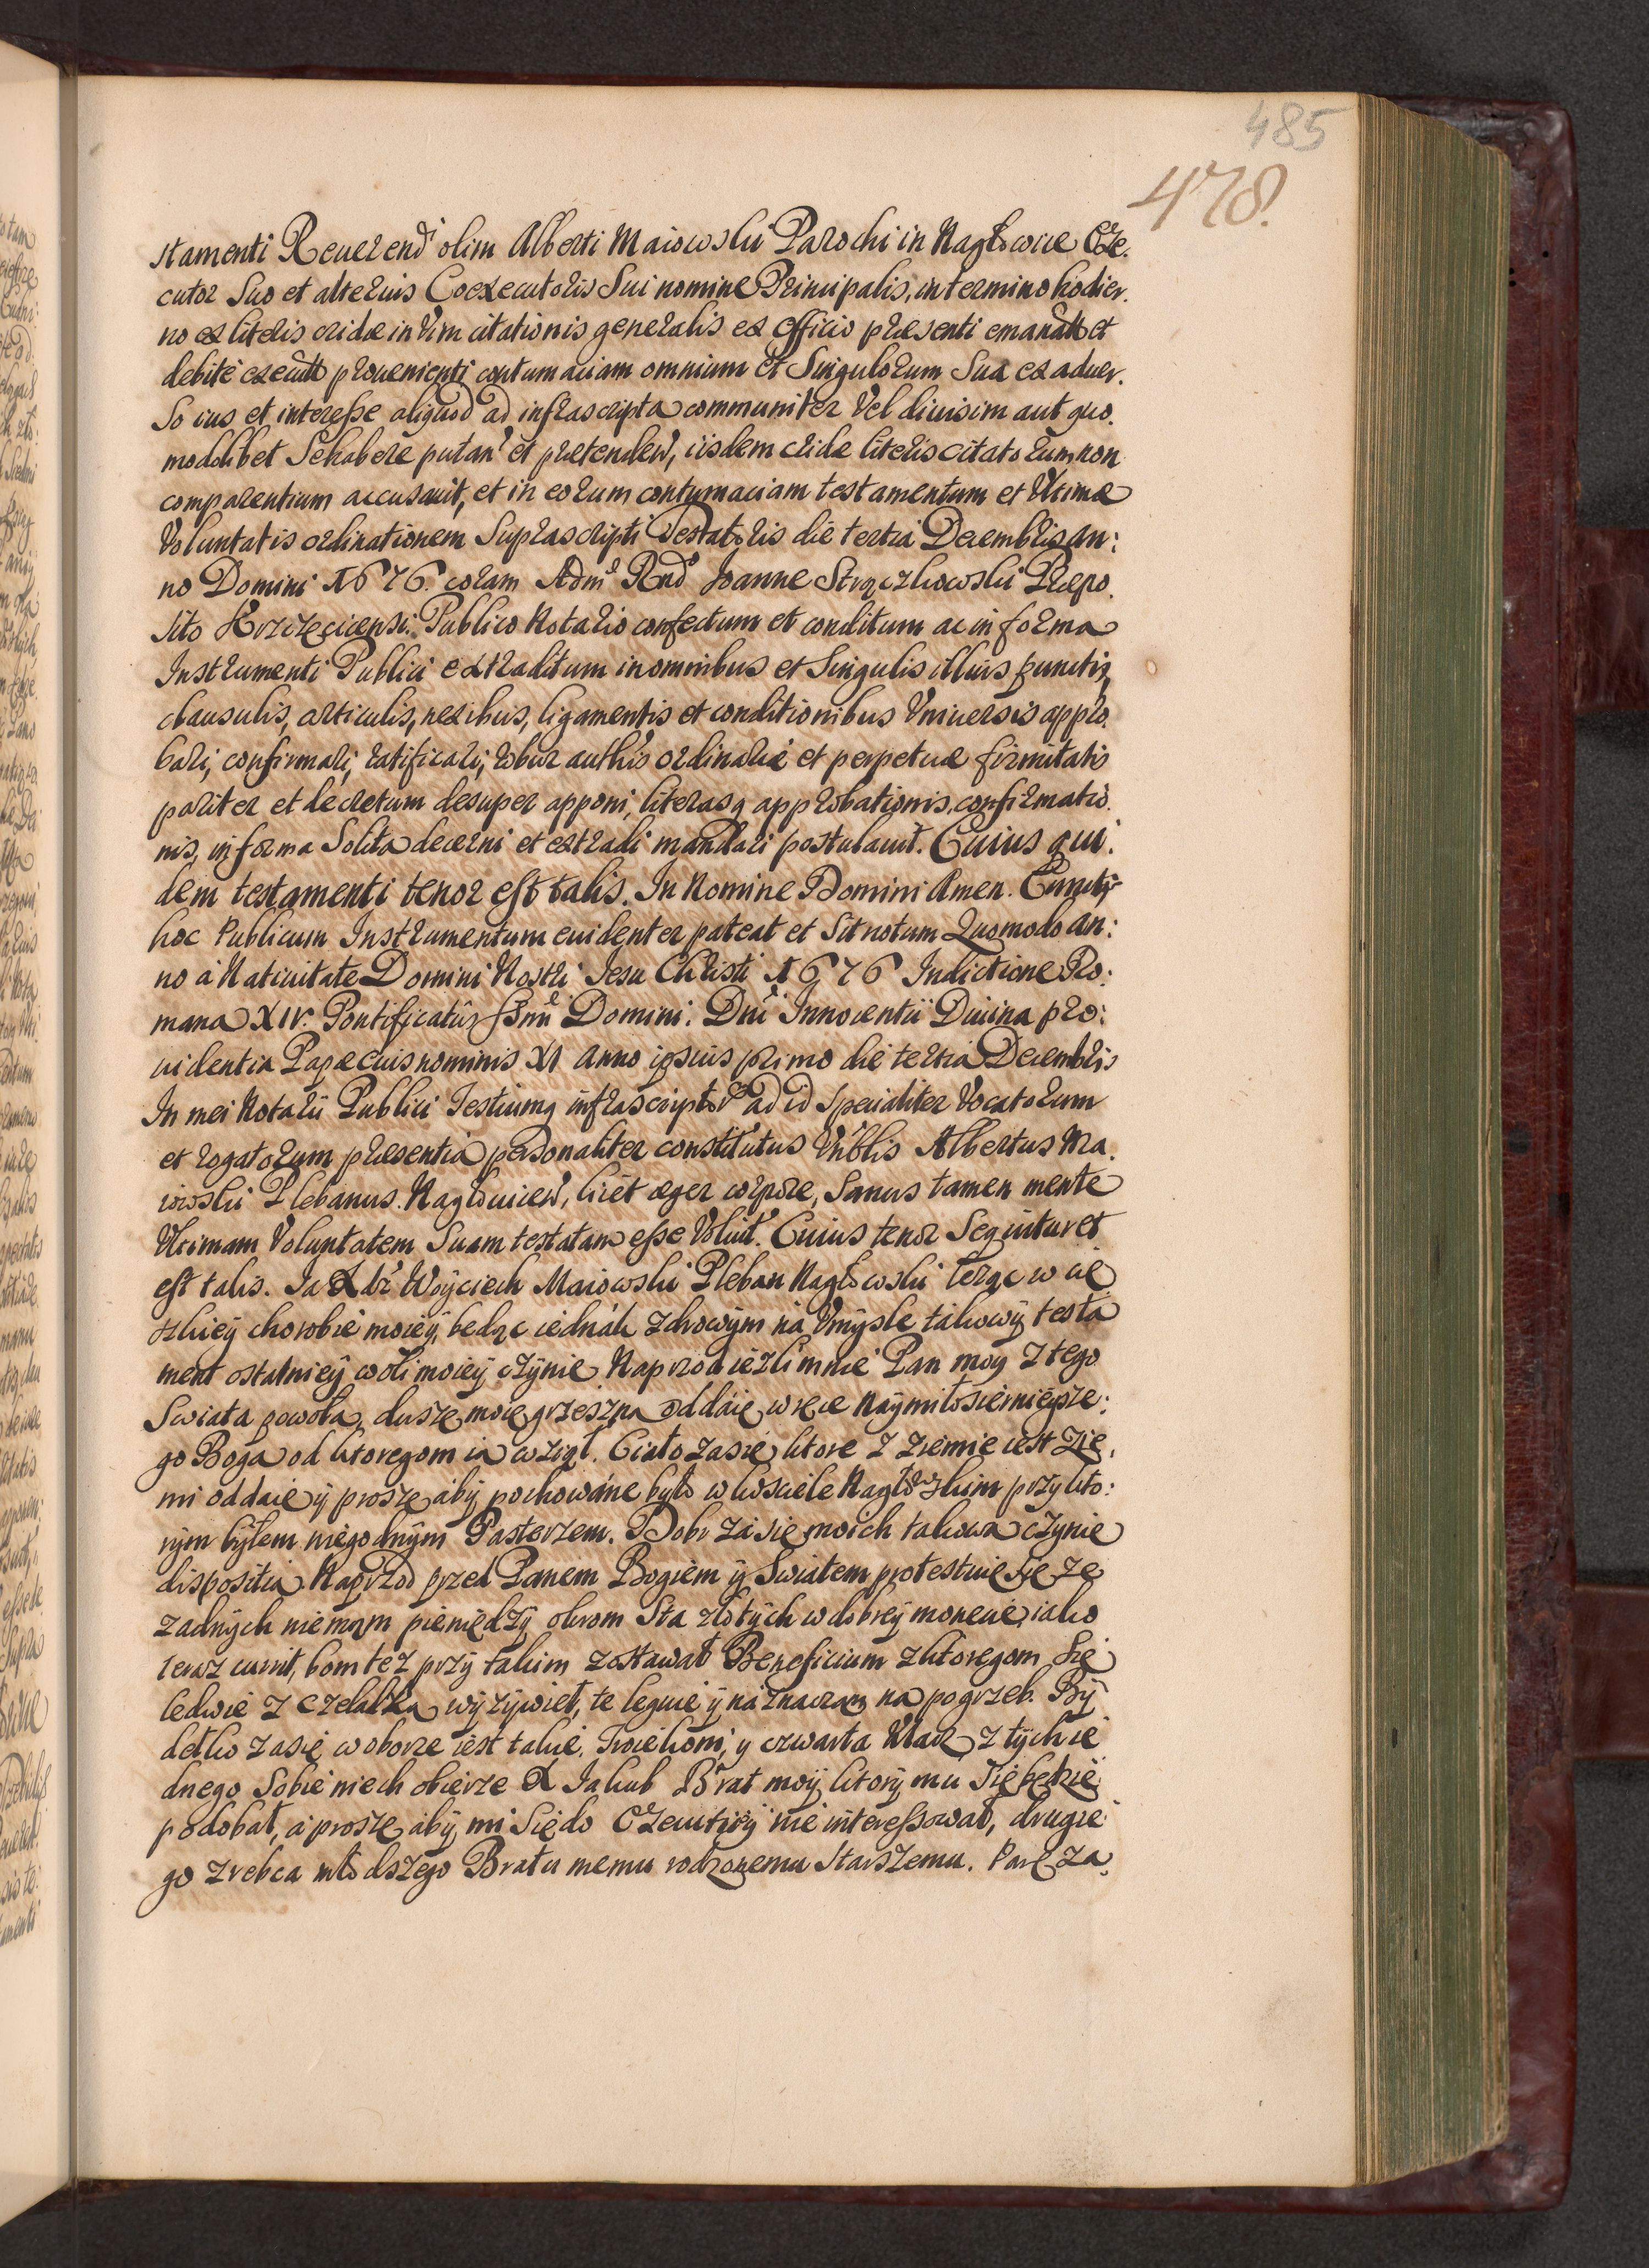 485
478.
stamenti Reuerendi olim Alberti Maiowski Parochi in Nagłowice Exe.
cutor Suo et alterius Coexecutoris Sui nomine Principalis, in termino hodier.
no ex literis cridæ in Vim citationis generalis ex officio præsenti emanatt et
debite executt prouenienti contumaciam omnium et Singulorum Sua ex aduer.
So ius et interesse aliquod ad infrascripta communiter Vel diuisim aut quo.
modolibet Se habere putan et prætenden, iisdem cridæ literis citatorum non
comparentium accusauit, et in eorum contumaciam testamentum et Vltimæ
Voluntatis ordinationem Suprascripti Testatoris die tertia Decembris an:
no Domini 1676. coram Adm Rnd Joanne Strączkowski Præpo.
sito Krzcięcicensi Publico Notario confectum et conditum ac in forma
Instrumenti Publici extraditum in omnibus et Singulis illius punctis,
clausulis, articulis, nexibus, ligamentis et conditionibus Vniuersis appro.
bari, confirmari, ratificari, robur authis ordinariæ et perpetuæ firmitatis
pariter et decretum desuper apponi, literasq approbationis, confirmatio.
nis, in forma Solita decerni et extradi mandari postulauit. Cuius qui.
dem testamenti tenor est talis. In Nomine Domini Amen. Cunctis
hoc Publicum Instrumentum euidenter pateat et Sit notum Quomodo An:
no à Natiuitate Domini Nostri Jesu Christi 1676 Indictione Ro:
mana XIV. Pontificatûs SSmi Domini. Dni Innocentii Diuina pro:
uidentia Papæ eius nominis XI anno ipsius primo die tertia Decembris
In mei Notarii Publici Testiumq infrascriptor ad id Specialiter Vocatorum
et rogatorum præsentia personaliter constitutus Vnblis Albertus Ma.
iowski Plebanus Nagłouicen, licèt æger corpore, Sanus tamen mente
Vltimam Voluntatem Suam testatam esse Voluit. Cuius tenor Sequitur et
est talis. Ja X dz Woyciech Maiowski Pleban Nagłowski leząc w cię
szkiey chorobie moiey, bedąc iednák zdrowym ná Vmysle tákowy testa
ment ostatniey woli moiey czynie Naprzod ieżli mnie Pan moy z tego
Swiata powoła, dusze moię grzeszną oddáię w ręce Naymiłosiernieysze:
go Boga od ktoregom ią wziął. Ciáło zasię ktore z ziemie iest Zie.
mi oddaie y proszę aby pochowáne było w kosciele Nagłowskim przy kto:
rym byłem niegodnym Pasterzem. Dobr zásię moich takowa czynie
dispositia Naprzod przed Panem Bogiem y Swiatem protestuię się ze
zadnych niemam pieniędzy okrom Sta złotych w dobrey monecie iako
teraz currit, bom tez przy takim zostawał Beneficium z ktoregom Się
ledwie z czeladką wyzywieł, te leguię y náznaczam na pogrzeb. By
detko zasię w oborze iest takie, Troie koni, y czwarta Klacz z tych ie
dnego Sobie niech obierze X Jakub Brat moy ktory mu Się będzie
podobał, á proszę aby mi Się do Executiey nie interessował, drugie
go zrebca młodszego Bratu memu rodzonemu Starszemu. Parę za.